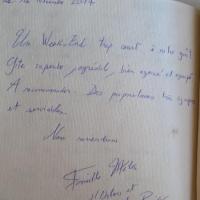 novembre 2017
Un Week-End trop court à notre goût
Gîte superbe, agréable, bien agencé et équipé
A recommander. Des propriétaires très sympas
et serviables.
Nous reviendrons
Famille
et